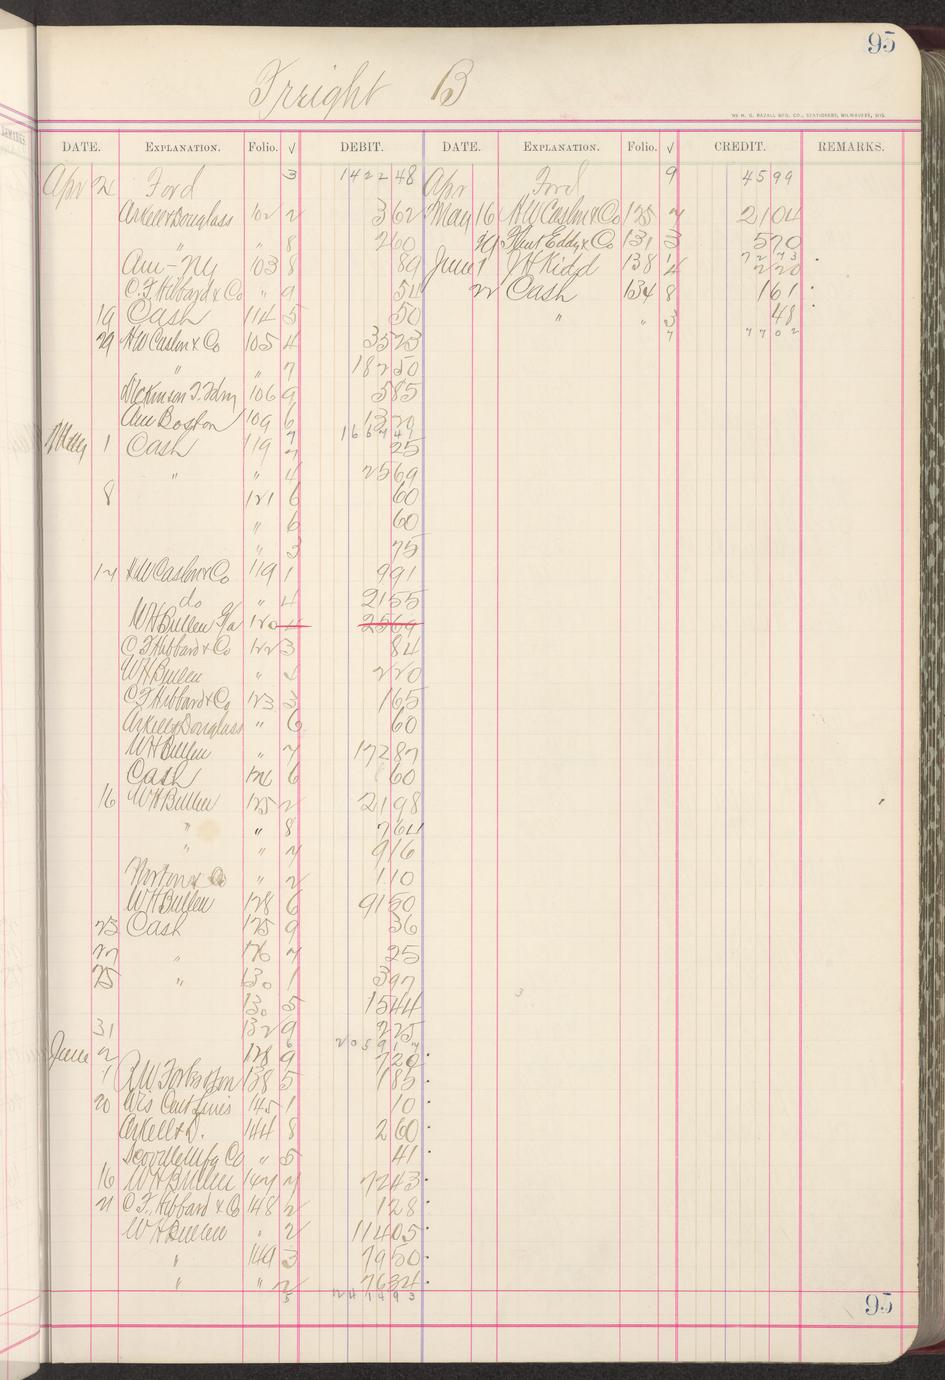 95
Freight B
THE H. G. RAZALL MFG. CO., STATIONERS, MILWAUKEE, WIS.
DATE. EXPLANATION. Folio. √ DEBIT. DATE. EXPLANATION. Folio. √ CREDIT. REMARKS.
Apr Ford 3 1422 48 Apr Ford 9 45 99
Arkell & Douglass 102 2 3 62 May 16 HW Caslin & Co 125 7 21 04
" " 8 2 60 29 Flint Eddy & Co 131 3 5 70
72 73
Am - NY 103 8 89 June 1 JH Kidd 138 4 2 20
C. F. Hibbard & Co " 9 54 22 Cash 134 8 1 61
19 Cash 114 5 50 " " 3 48
77 02
29 HW Caslin & Co 105 4 35 23
" " 7 182 50
Dickinson 106 9 5 85
Am Boston 109 6 13 20
1667 47
May 1 Cash 119 7 25
" " 4 25 69
8 121 6 60
" 6 60
" 3 75
14 HW Caslin & Co 119 1 9 91
do " 4 21 55
WH Bullen 120 4 25 69
C F Hibbard & Co 122 3 84
WH Bullen " 4 2 20
C F Hibbard & Co 123 3 1 65
Arkell & Douglass " 6 60
WH Bullen " 7 172 87
Cash 126 6 60
16 WH Bullen 125 2 21 98
" " 8 7 64
" " 7 9 16
Norton & Co " 2 1 10
WH Bullen 128 6 91 50
23 Cash 125 9 36
27 " 126 7 25
25 " 130 1 3 97
130 5 15 44
31 132 9 2 25
2059 17
June 2 128 9 7 20
1 138 5 1 85
20 Wis Cent Lines 145 1 10
Arkell & D. 144 8 2 60
Scoville Mfg Co " 5 41
16 WH Bullen 147 7 72 43
21 C. F. Hibbard & Co 148 2 1 28
WH Bullen " 2 114 05
" 149 3 79 50
" " 2 76 34
5 2414 93
95